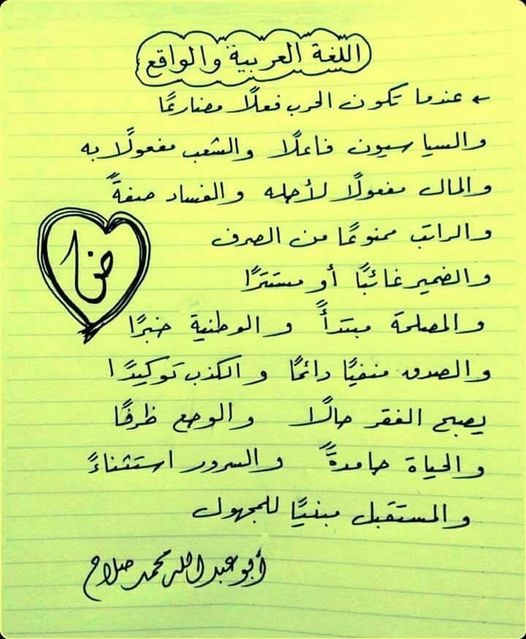 اللغة العربية والواقع
← عندما تكون الحرب فعلًا مضارعًا
والسياسيون فاعلًا والشعب مفعولًا به
والمال مفعولًا لأجله والفساد صفةً
والراتب ممنوعًا من الصرف
والضمير غائبًا أو مستترًا
والمصلحة مبتدأً والوطنية خبرًا
والصدق منفيًا دائمًا والكذب توكيدًا
يصبح الفقر حالًا والوجع ظرفًا
والحياة جامدةً والسرور استثناءً
والمستقبل مبنيًا للمجهول
أبو عبد الله محمد صلاح